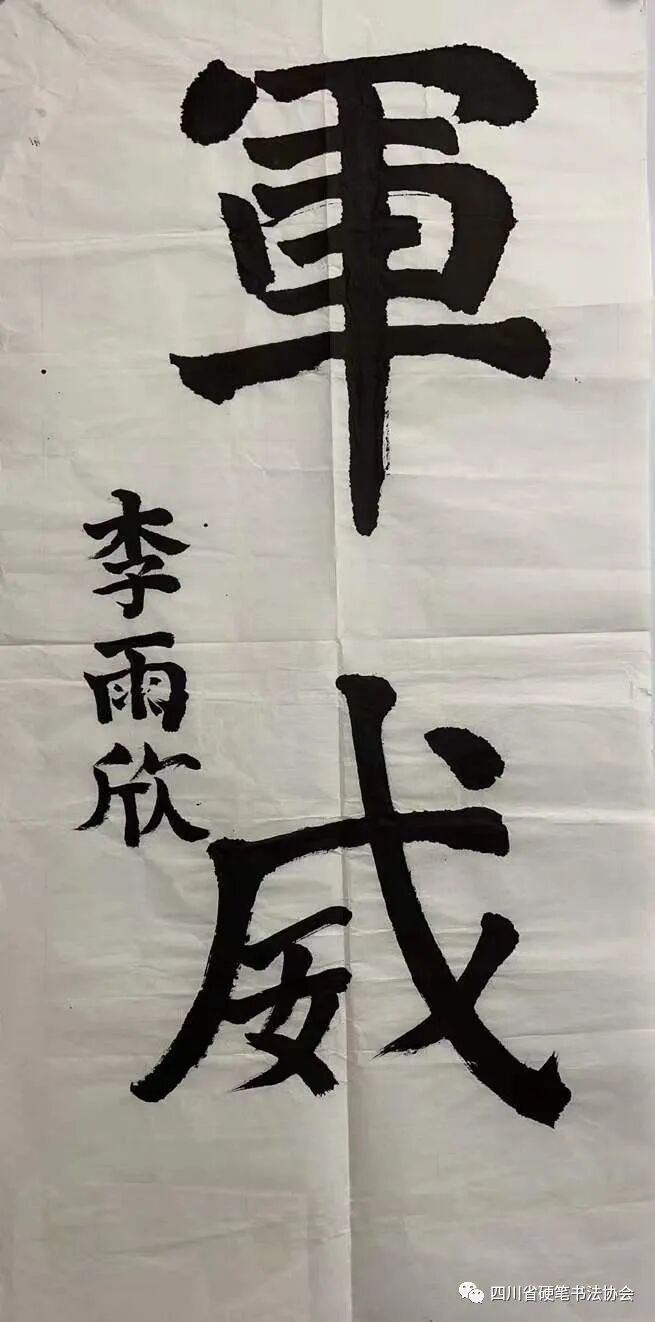 軍威
李雨欣
四川省硬笔书法协会